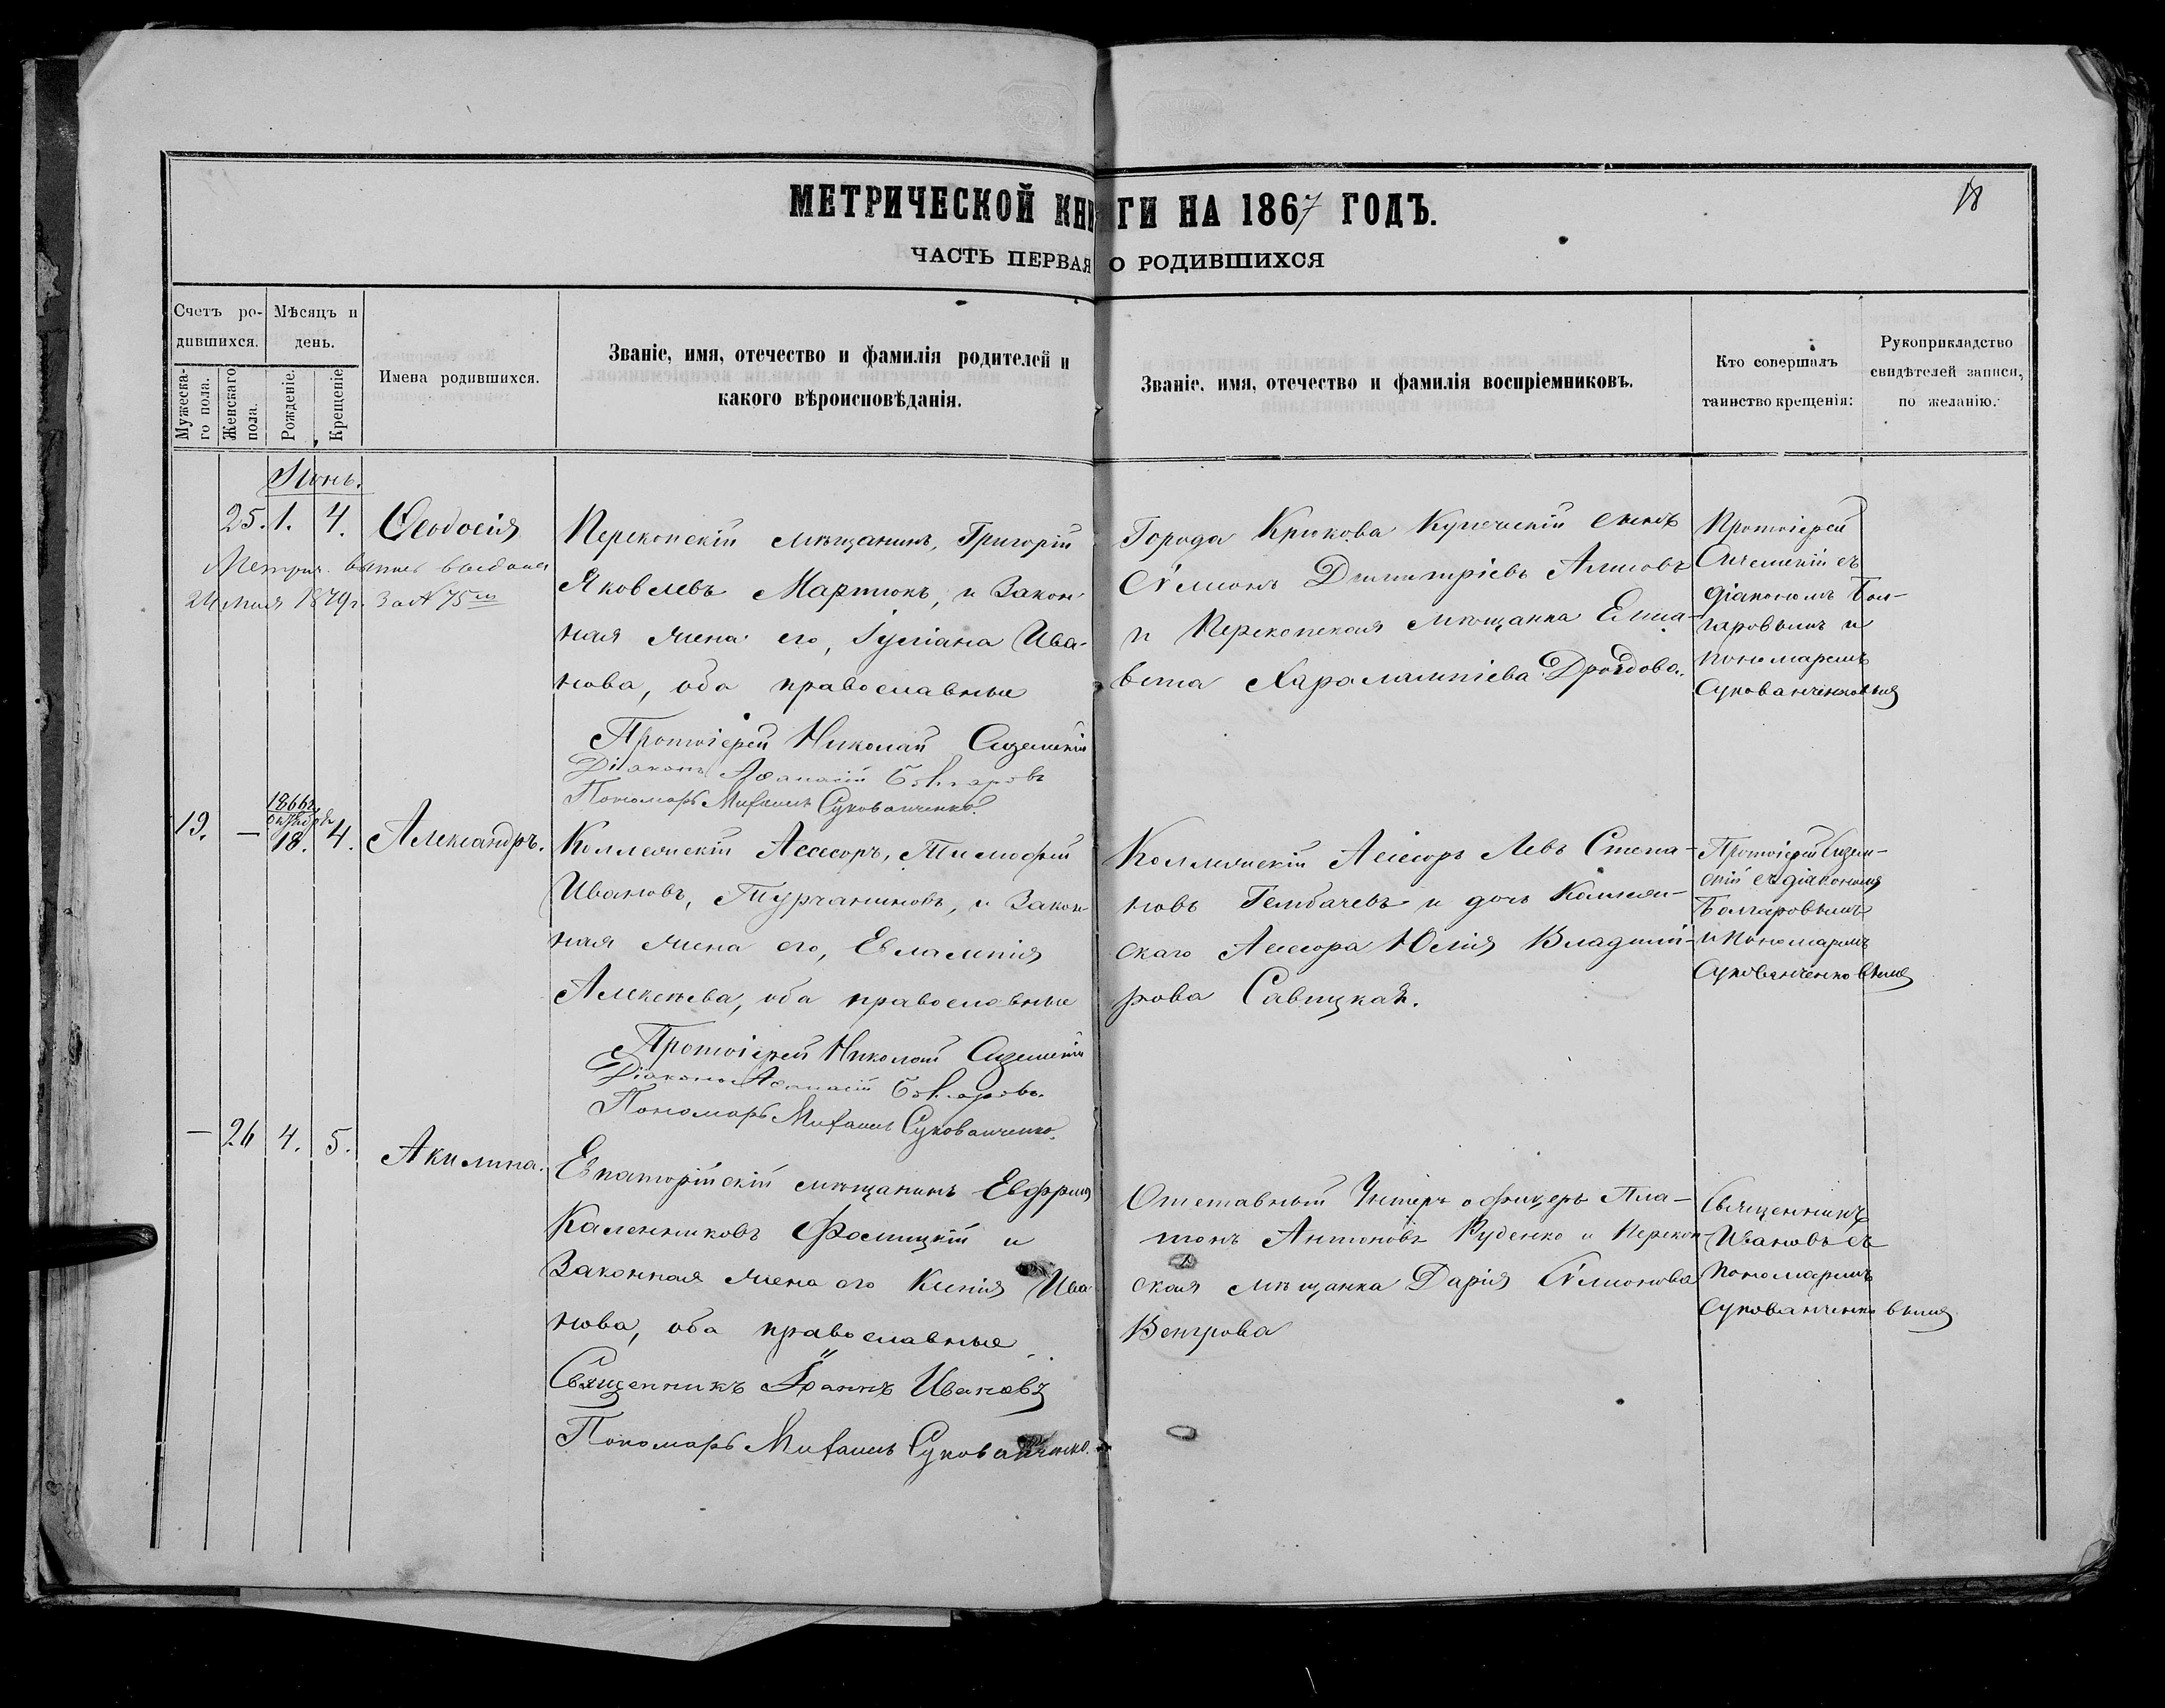 18
МЕТРИЧЕСКОЙ КНИГИ НА 1867 ГОДЪ.
ЧАСТЬ ПЕРВАЯ О РОДИВШИХСЯ
Счетъ ро-
дившихся.
Мужеска-
го пола.
Женскаго
пола.
Мѣсяцъ и
день.
Рожденіе.
Крещеніе.
Имена родившихся.
Званіе, имя, отечество и фамилія родителей и
какого вѣроисповѣданія.
Званіе, имя, отечество и фамилія воспріемниковъ.
Кто совершалъ
таинство крещенія:
Рукоприкладство
свидѣтелей записи,
по желанію.
Іюнь.
25. 1. 4. Ѳеодосія
Метрич. выпись выдана
24 1879г. за № 75
Перекопскій мѣщанинъ, Григорій
Яковлевъ Мартюкъ, и закон-
ная жена его, Іуліана Ива-
нова, оба православные
Протоіерей Николай
Діаконъ Аѳанасій Болгаровъ
Пономарь Михаилъ Сукованченко.
Города Крюкова Купеческій сынъ
Сѵмеонъ Димитріевъ Алисовъ
и Перекопская мѣщанка Елиса-
вета Харалампіева Дроздова.
Протоіерей
съ
діакономъ Бол-
гаровымъ и
пономаремъ
Сукованченковымъ
19. — 1866г. Октября 18. 4. Александръ.
Коллежскій Ассесоръ, Тимофей
Ивановъ, Турчаниновъ, и закон-
ная жена его, Евлампія
Алексѣева, оба православные
Протоіерей Николай
Діаконъ Аѳанасій Болгаровъ.
Пономарь Михаилъ Сукованченко.
Коллежскій Ассесоръ Левъ Степа-
новъ и дочь Коллеж-
скаго Ассесора Юлія Владимі-
рова Савицкая.
Протоіерей
съ діакономъ
Болгаровымъ
и пономаремъ
Сукованченковымъ
— 26 4. 5. Акилина.
Евпаторійскій мѣщанинъ
Каленниковъ и
законная жена его Ксенія Ива-
нова, оба православные
Священникъ Іоаннъ Ивановъ
Пономарь Михаилъ Сукованченко.
Отставный Унтеръ офицеръ Пла-
тонъ Антоновъ Руденко и Перекоп-
ская мѣщанка Дарія Сѵмеонова
Венгрова
Священникъ
Ивановъ съ
пономаремъ
Сукованченковымъ